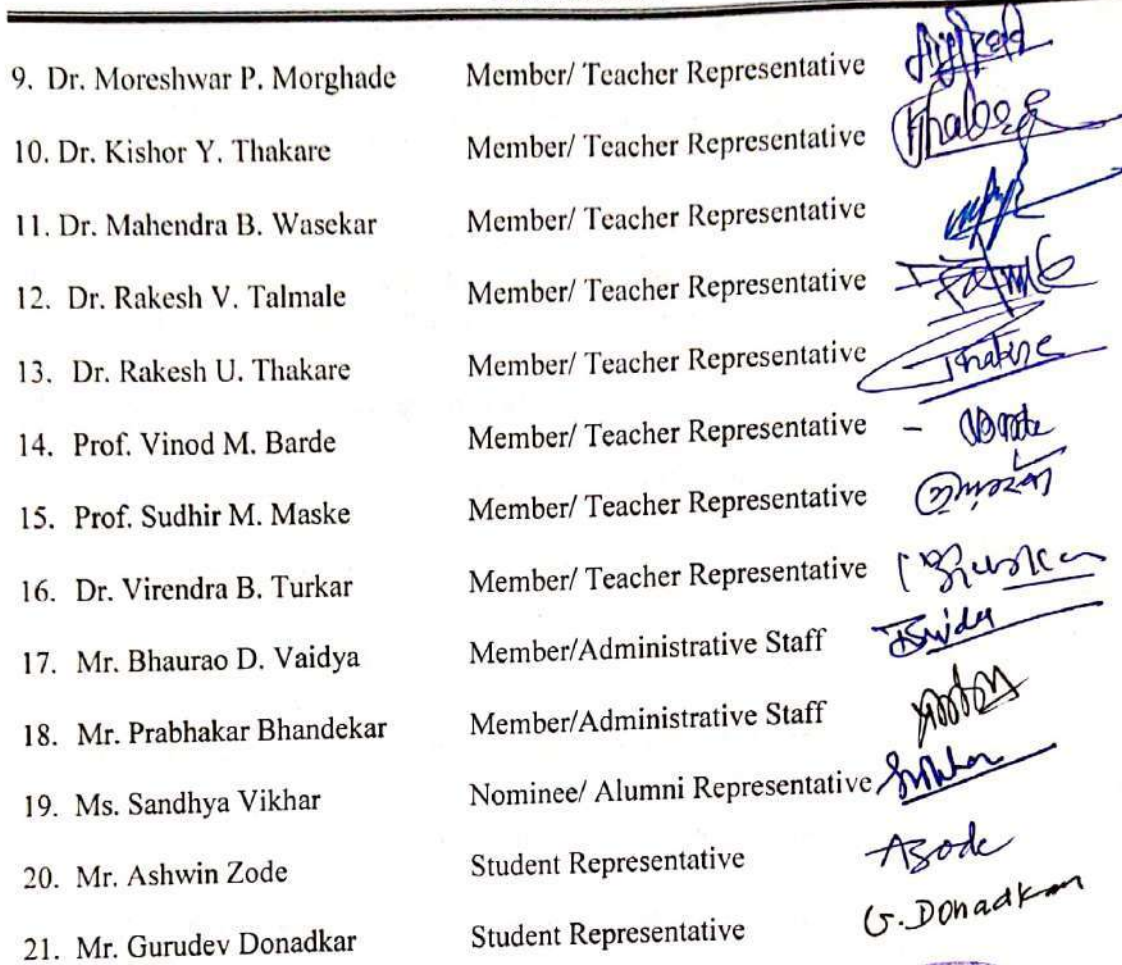 9. Dr. Moreshwar P. Morghade Member/ Teacher Representative
10. Dr. Kishor Y. Thakare Member/ Teacher Representative
11. Dr. Mahendra B. Wasekar Member/ Teacher Representative
12. Dr. Rakesh V. Talmale Member/ Teacher Representative
13. Dr. Rakesh U. Thakare Member/ Teacher Representative Thakre
14. Prof. Vinod M. Barde Member/ Teacher Representative -
15. Prof. Sudhir M. Maske Member/ Teacher Representative
16. Dr. Virendra B. Turkar Member/ Teacher Representative
17. Mr. Bhaurao D. Vaidya Member/Administrative Staff
18. Mr. Prabhakar Bhandekar Member/Administrative Staff
19. Ms. Sandhya Vikhar Nominee/ Alumni Representative
20. Mr. Ashwin Zode Student Representative AZode
21. Mr. Gurudev Donadkar Student Representative G. Donadkar